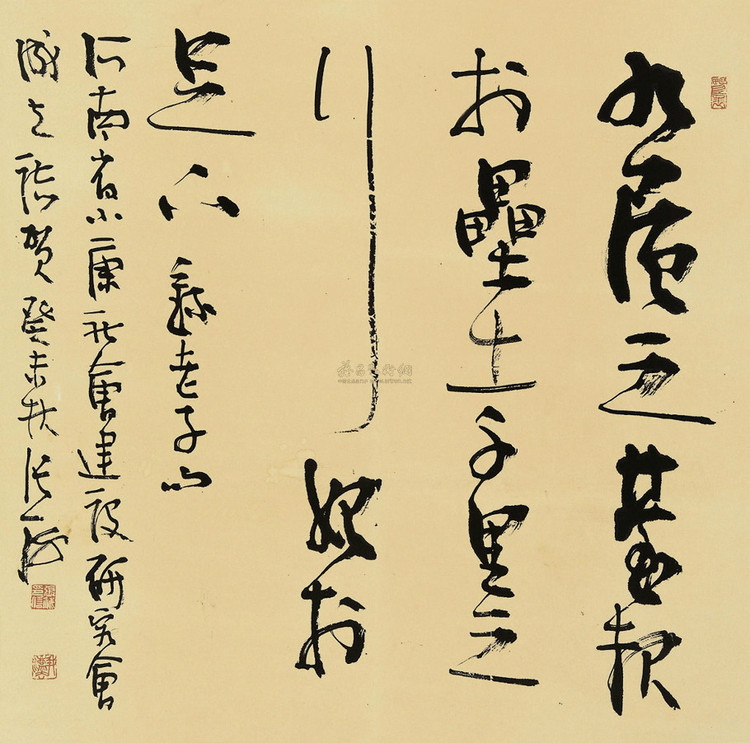 九層之臺起
於壘土千里之
行始於
足下 錄老子句
河南省小康社會建設研究會
成立誌賀癸未秋張海